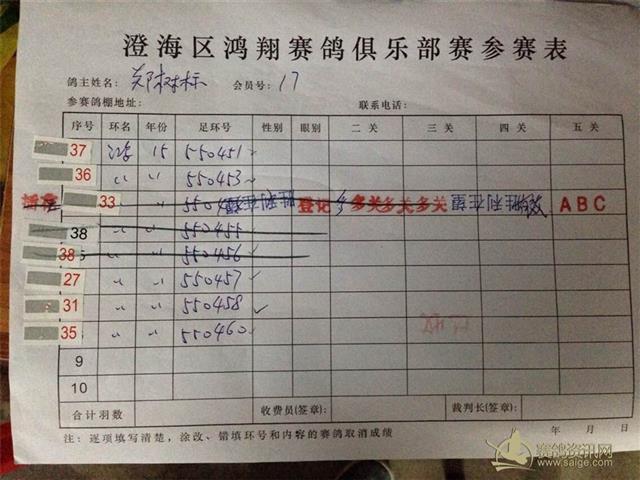 澄海区鸿翔赛鸽俱乐部赛参赛表
鸽主姓名: 郑树标 会员号: 17
参赛鸽棚地址: 联系电话:
序号 环名 年份 足环号 性别 眼别 二关 三关 四关 五关
37 15 550451
36 〃 〃 550453
33 登记 多关多关多关 ABC
38 〃 〃 550455
38 〃 〃 550456
27 〃 〃 550457 ✓
31 〃 〃 550458 ✓
35 〃 〃 550460
9
10
合计羽数 收费员(签章): 裁判长(签章):
注: 逐项填写清楚，涂改、错填环号和内容的赛鸽取消成绩 年 月 日
赛鸽资讯网
www.saige.com